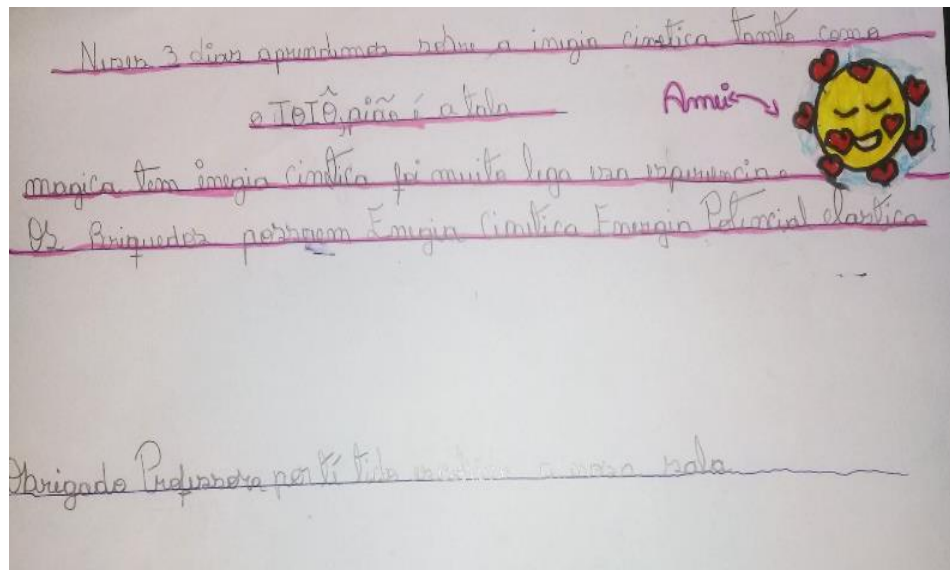 Nesses 3 dias aprendimos sobre a inegia cinetica tanto como
o IOIÔ, pião é a lala
Amei
magica tem inegia cinetica foi muito lega
Os Briquedos possuem Energia Cinetica Energia Potencial elastica
Obrigado Professora por ti tido a nossa sala